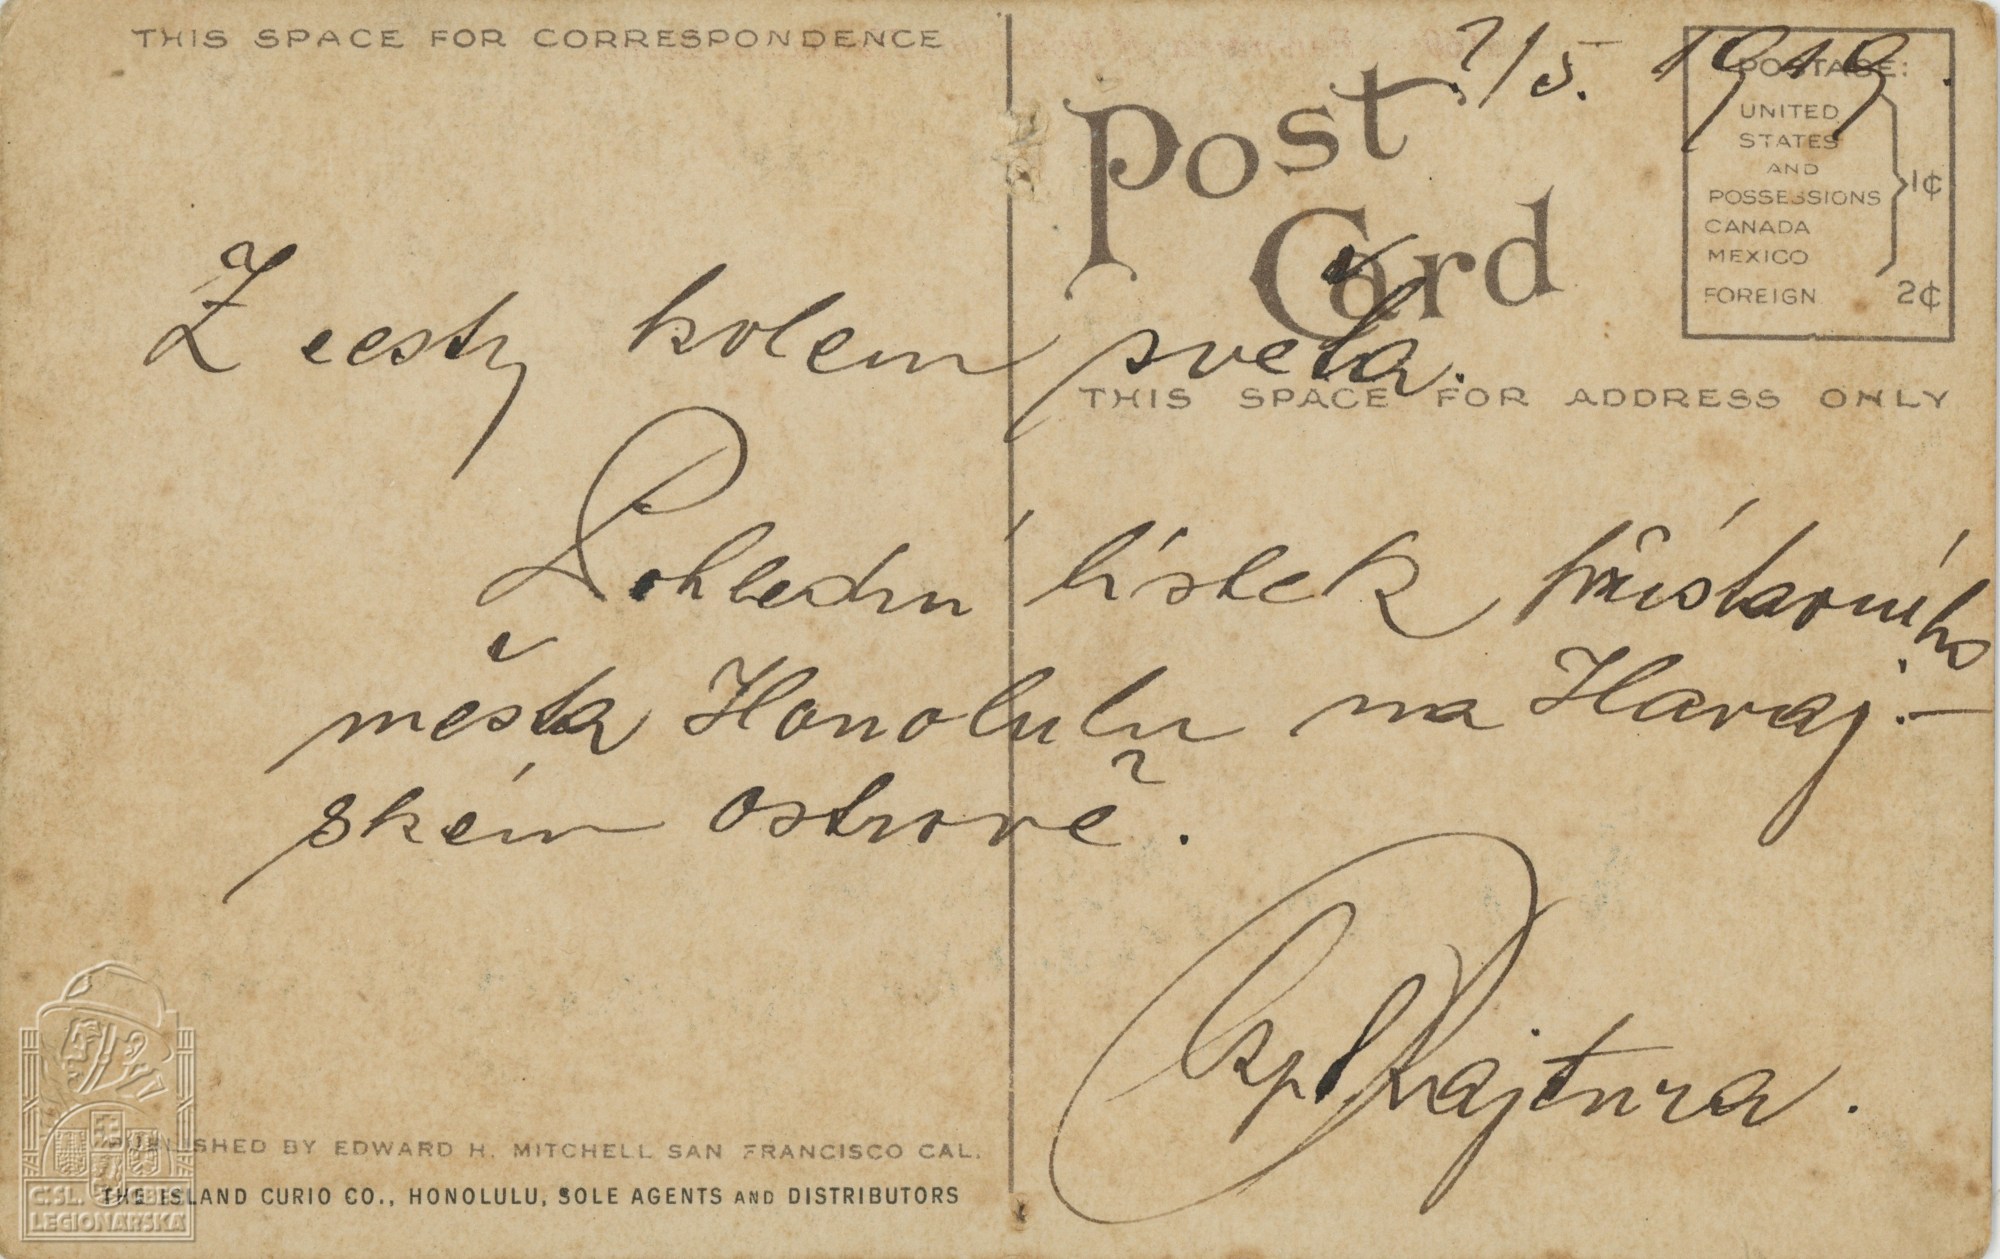 THIS SPACE FOR CORRESPONDENCE
7/5. 1919.
Post
Card
POSTAGE:
UNITED
STATES
AND
POSSESSIONS
CANADA
MEXICO
1¢
FOREIGN 2¢
THIS SPACE FOR ADDRESS ONLY
Z cesty kolem světa.
Pohlední lístek přístavního
města Honolulu na Havaj-
ském ostrově.
Rajtura.
PUBLISHED BY EDWARD H. MITCHELL SAN FRANCISCO CAL.
THE ISLAND CURIO CO., HONOLULU, SOLE AGENTS AND DISTRIBUTORS
Č.SL. OBEC
LEGIONÁŘSKÁ